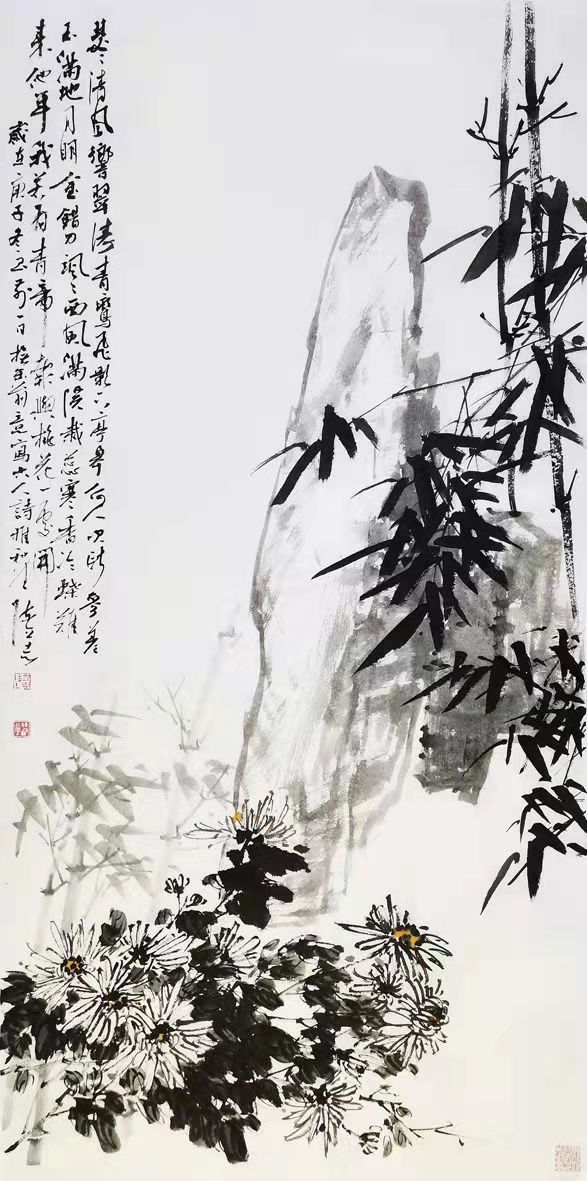 瑟〻清風響翠濤青鸞飛影下亭皋何人斫參差
玉滿地月明金錯刀颯〻西風滿院栽蕊寒香冷蝶難
來他年我若為青帝報與桃花一處開
歲在庚子冬至前一日寫古人詩